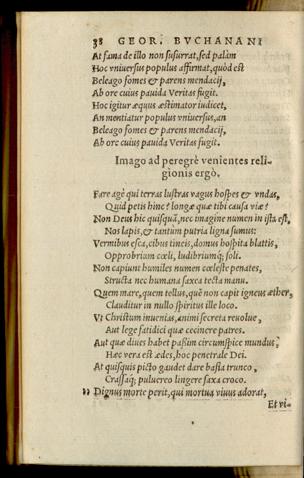 38 GEOR. BVCHANANI
At fama de illo non susurrat, sed palàm
Hoc vniuersus populus affirmat, quòd est
Beleago fomes & parens mendacij,
Ab ore cuius pauida Veritas fugit.
Hoc igitur æquus æstimator iudicet,
An mentiatur populus vniuersus, an
Beleago fomes & parens mendacij,
Ab ore cuius pauida Veritas fugit.
Imago ad peregrè venientes reli-
gionis ergò.
Fare agè qui terras lustras vagus hospes & vndas,
Quid petis hinc? longæ quæ tibi causa viæ?
Non Deus hic quisquā, nec imagine numen in ista est,
Nos lapis, & tantum putria ligna sumus:
Vermibus esca, cibus tineis, domus hospita blattis,
Opprobrium cœli, ludibriumq; soli.
Non capiunt humiles numen cœleste penates,
Structa nec humana saxea tecta manu.
Quem mare, quem tellus, quē non capit igneus æther,
Clauditur in nullo spiritus ille loco.
Vt Christum inuenias, animi secreta reuolue,
Aut lege fatidici quæ cecinere patres.
Aut quæ diues habet passim circumspice mundus,
Hæc vera est ædes, hoc penetrale Dei.
At quisquis picto gaudet dare basia trunco,
Crassaq; puluereo lingere saxa croco.
Dignus morte perit, qui mortua viuus adorat,
Et vi-